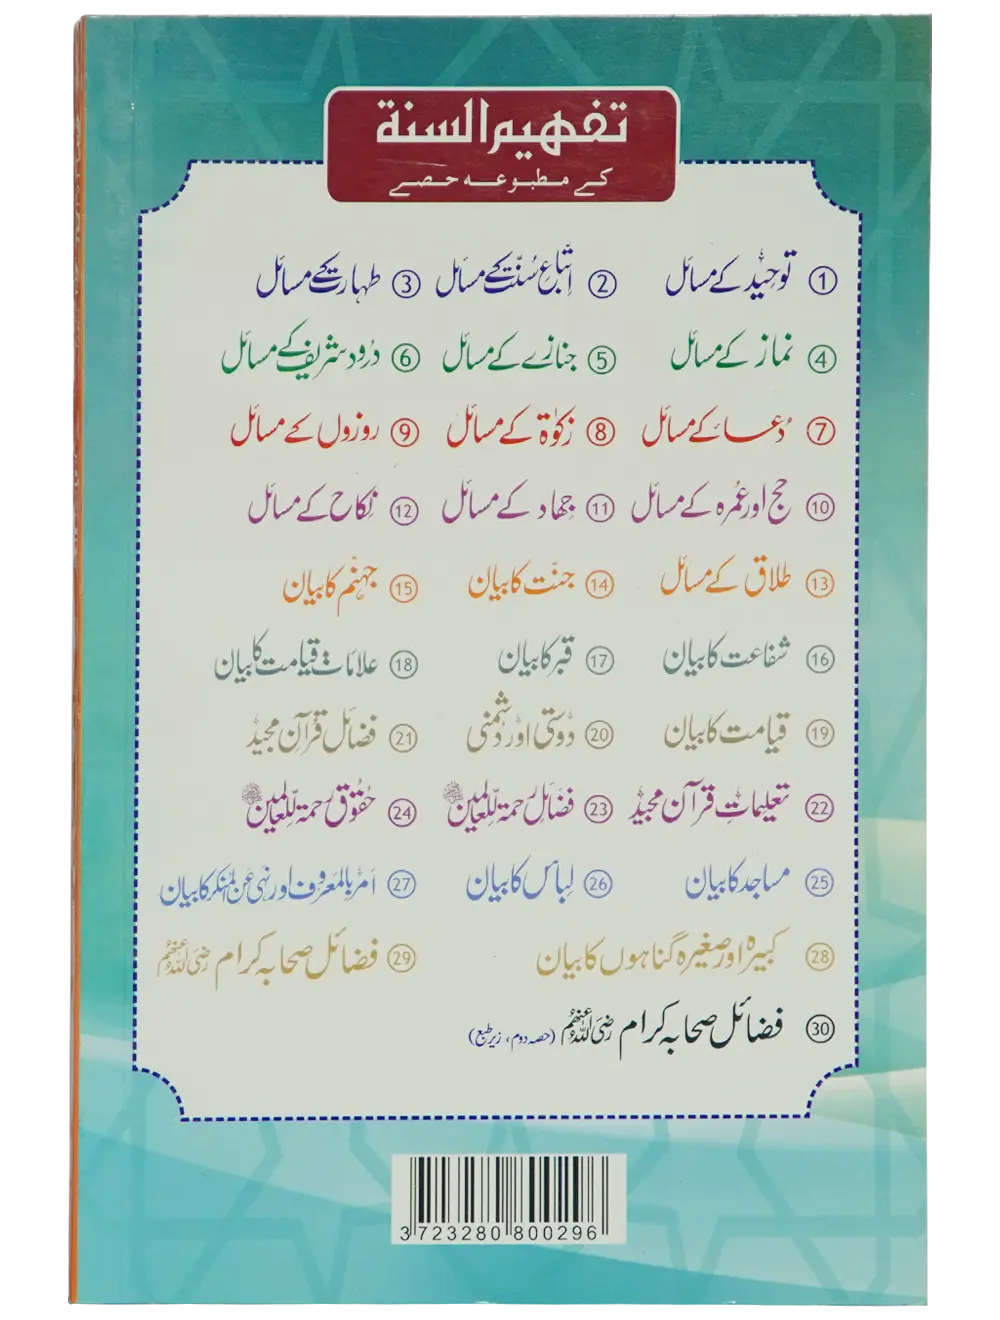 تفهیم السنة
کے مطبوعہ حصے
① توحید کے مسائل ② اتباع سُنّت کے مسائل ③ طہارت کے مسائل
④ نماز کے مسائل ⑤ جنازے کے مسائل ⑥ دُرود شریف کے مسائل
⑦ دُعا کے مسائل ⑧ زکوٰۃ کے مسائل ⑨ روزوں کے مسائل
⑩ حج اور عمُرہ کے مسائل ⑪ جہاد کے مسائل ⑫ نکاح کے مسائل
⑬ طلاق کے مسائل ⑭ جنّت کا بیان ⑮ جہنّم کا بیان
⑯ شفاعت کا بیان ⑰ قبر کا بیان ⑱ علاماتِ قیامت کا بیان
⑲ قیامت کا بیان ⑳ دوستی اور دشمنی ㉑ فضائل قرآن مجید
㉒ تعلیماتِ قرآن مجید ㉓ فضائل رحمۃ للعالمین ﷺ ㉔ حقوق رحمۃ للعالمین ﷺ
㉕ مساجد کا بیان ㉖ لباس کا بیان ㉗ امر بالمعروف اور نہی عن المنکر کا بیان
㉘ کبیرہ اور صغیرہ گناہوں کا بیان ㉙ فضائل صحابہ کرام رضی اللہ عنہم
㉚ فضائل صحابہ کرام رضی اللہ عنہم (حصہ دوم، زیر طبع)
3723280800296